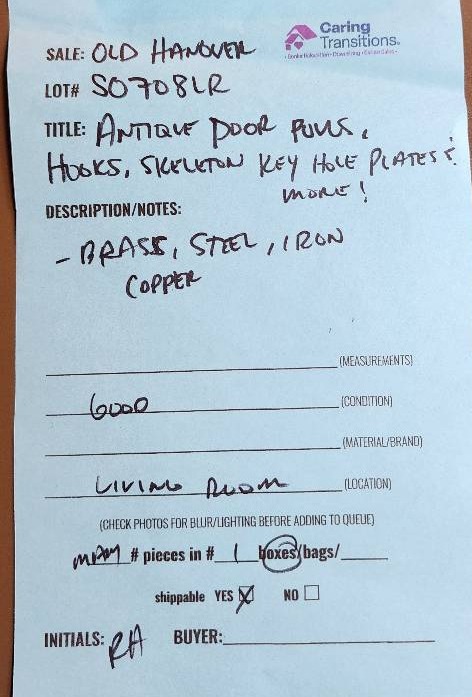 Caring
Transitions®
SALE: OLD HANOVER
LOT# SO708LR
TITLE: ANTIQUE DOOR PULLS,
HOOKS, SKELETON KEY HOLE PLATES &
MORE!
DESCRIPTION/NOTES:
- BRASS, STEEL, IRON
COPPER
(MEASUREMENTS)
GOOD (CONDITION)
(MATERIAL/BRAND)
LIVING ROOM (LOCATION)
(CHECK PHOTOS FOR BLUR/LIGHTING BEFORE ADDING TO QUEUE)
MANY # pieces in # 1 boxes/bags/
shippable YES NO
INITIALS: RA BUYER: